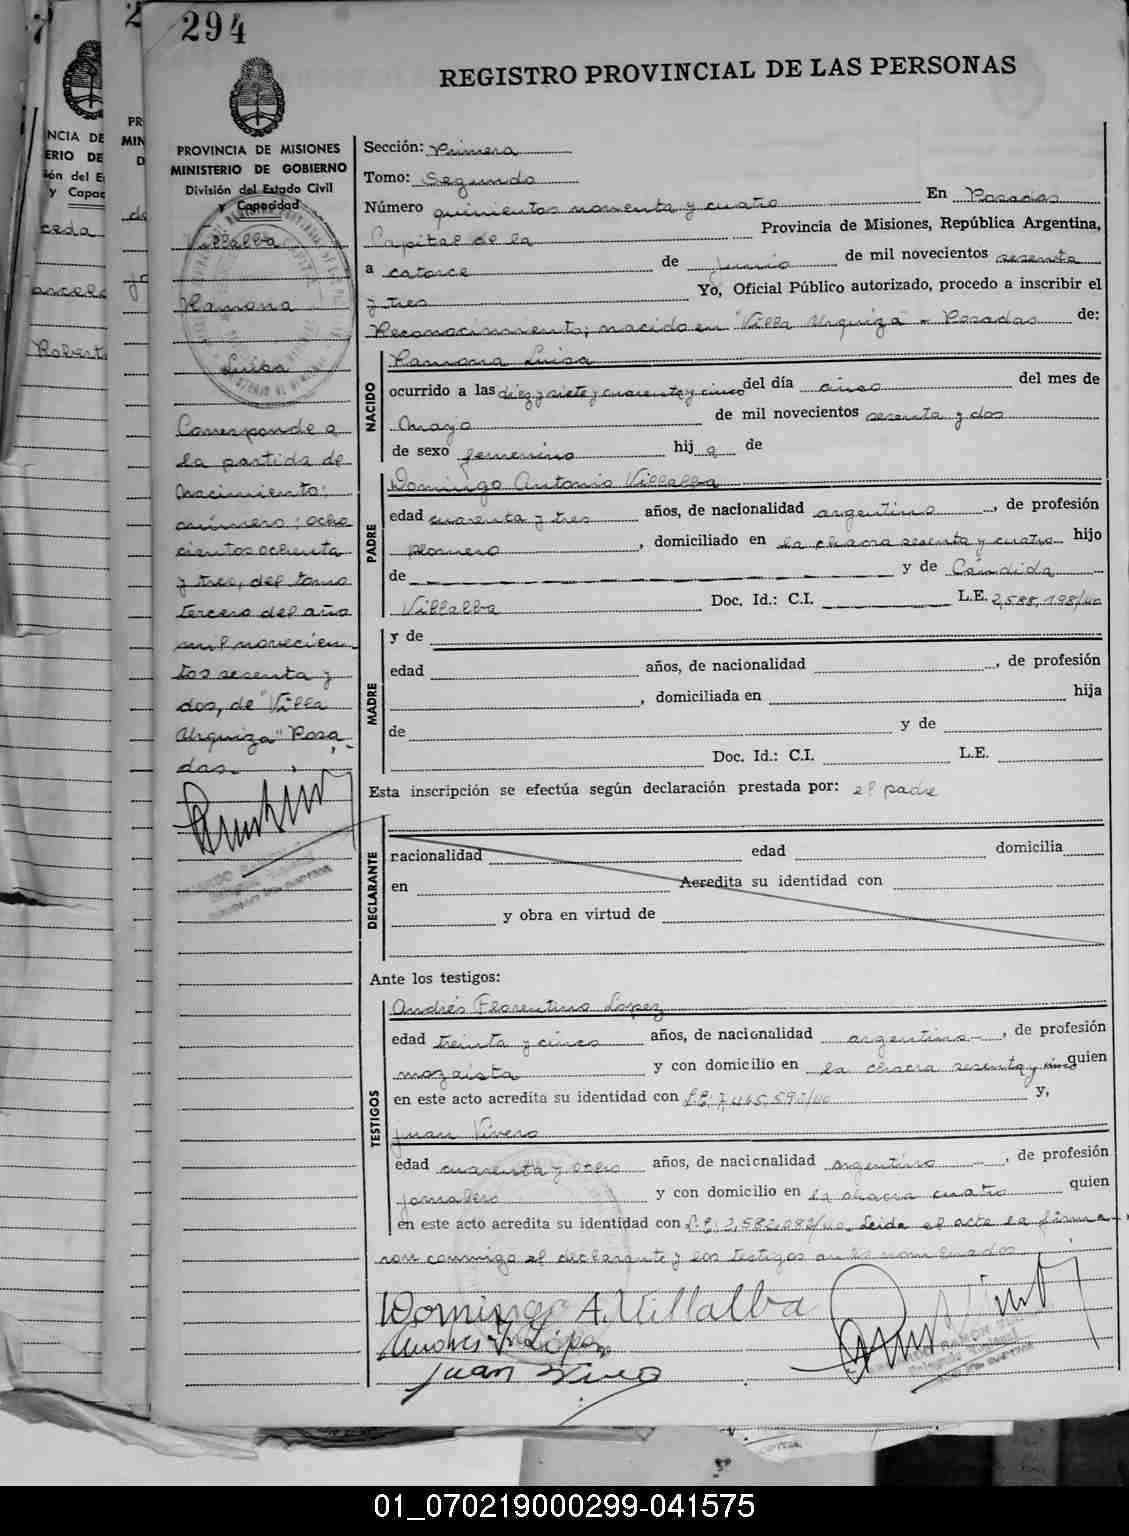 294
REGISTRO PROVINCIAL DE LAS PERSONAS
PROVINCIA DE MISIONES
MINISTERIO DE GOBIERNO
División del Estado Civil
y Capacidad
Villalba
Ramona
Luisa
Corresponde a
la partida de
Nacimiento;
número; ocho
cientos ochenta
y tres, del tomo
tercero del año
mil novecien
tos sesenta y
dos, de "Villa
Urquiza" Posa
das.
Sección: Primera
Tomo: Segundo
Número quinientos noventa y cuatro En Posadas
Capital de la Provincia de Misiones, República Argentina,
a catorce de junio de mil novecientos sesenta
y tres Yo, Oficial Público autorizado, procedo a inscribir el
Reconocimiento; nacido en "Villa Urquiza" - Posadas de:
NACIDO
Ramona Luisa
ocurrido a las diez y siete y cuarenta y cinco del día cinco del mes de
Mayo de mil novecientos sesenta y dos
de sexo femenino hij a de
PADRE
Domingo Antonio Villalba
edad cuarenta y tres años, de nacionalidad argentino, de profesión
plomero, domiciliado en la chacra sesenta y cuatro hijo
de y de Cándida
Villalba Doc. Id.: C.I. L.E. 2,588,198/
MADRE
y de
edad años, de nacionalidad , de profesión
, domiciliada en hija
de y de
Doc. Id.: C.I. L.E.
Esta inscripción se efectúa según declaración prestada por: el padre
DECLARANTE
nacionalidad edad domicilia
en Acredita su identidad con
y obra en virtud de
Ante los testigos:
TESTIGOS
Andrés Florentino Lopez
edad treinta y cinco años, de nacionalidad argentino, de profesión
mozaista y con domicilio en la chacra sesenta y quien
en este acto acredita su identidad con L.E: y,
Juan Vivero
edad cuarenta y años, de nacionalidad argentino, de profesión
jornalero y con domicilio en la chacra cuatro quien
en este acto acredita su identidad con L.E: Leida el acta la firma
ron conmigo el declarante y los testigos antes nombrados
Domingo A. Villalba
Andres F. López
Juan Vivero
01_070219000299-041575